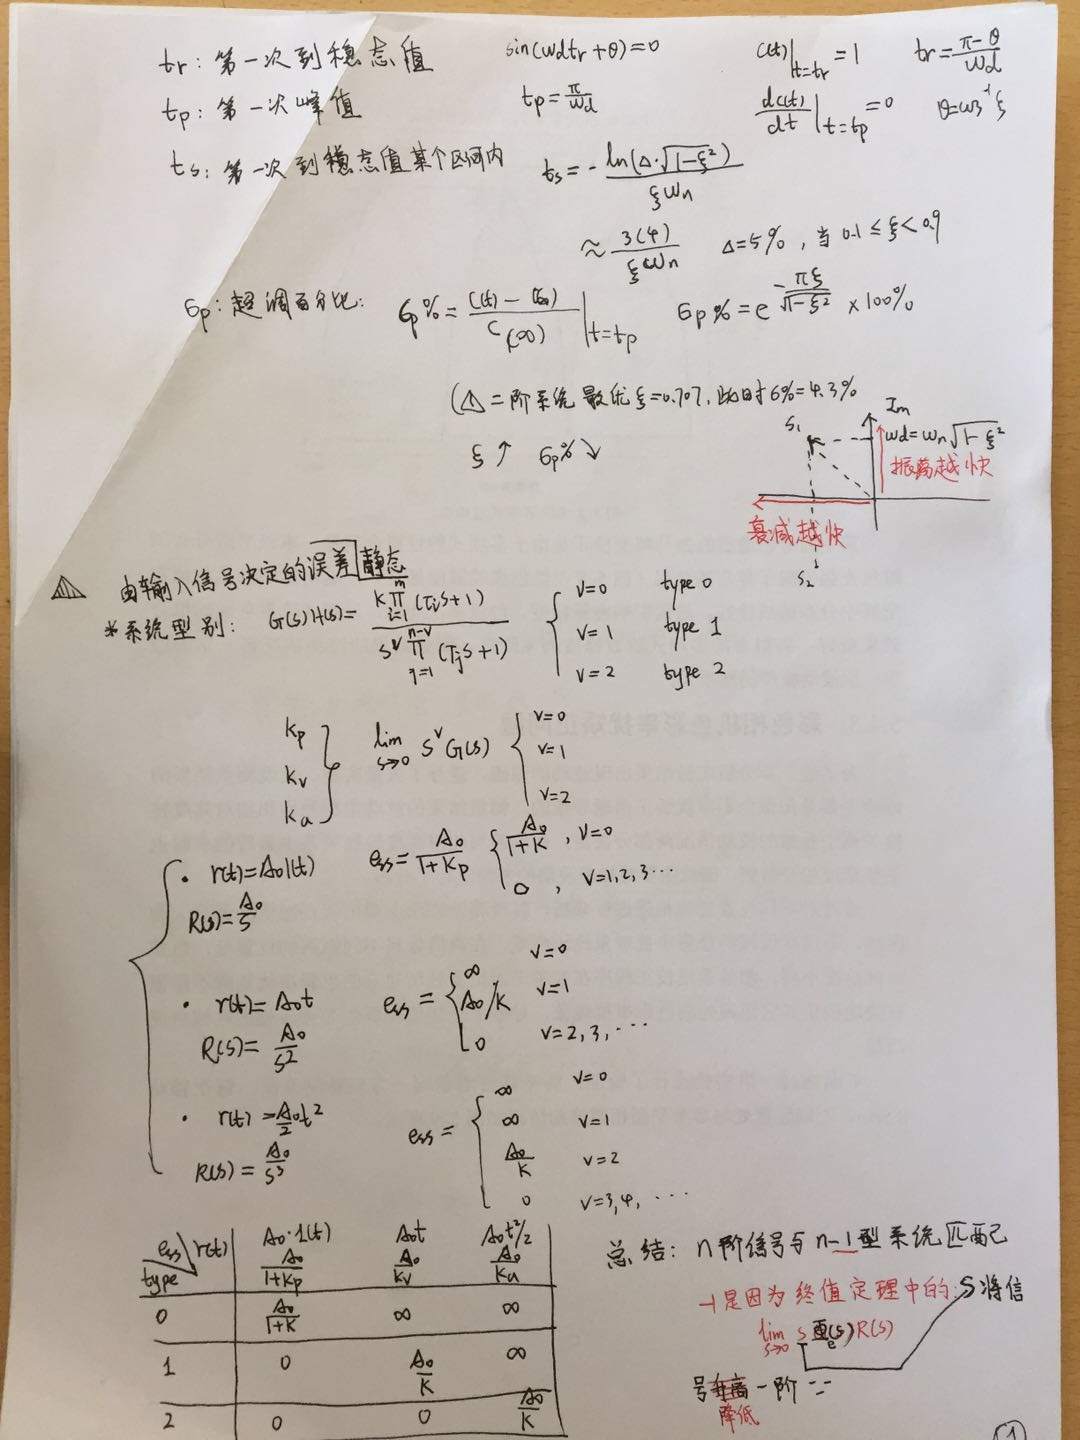 tr: 第一次到稳态值 sin(ωdtr+θ)=0 c(t)|t=tr =1 tr=π-θ/ωd
tp: 第一次峰值 tp=π/ωd dc(t)/dt|t=tp =0 θ=cos⁻¹ξ
ts: 第一次到稳态值某个区间内 ts=-ln(Δ·√1-ξ²)/ξωn
≈3(4)/ξωn Δ=5%, 当0.1≤ξ<0.9
σp: 超调百分比: σp%=c(t)-c(∞)/c(∞)|t=tp σp%=e^-πξ/√1-ξ² ×100%
(⚠二阶系统最优ξ=0.707,此时σ%=4.3%
ξ↑ σp%↘
Im
S1
ωd=ωn√1-ξ²
振荡越快
衰减越快
S2
由输入信号决定的误差 静态
*系统型别: G(s)H(s)=K∏(i=1→m)(τis+1)/s^v∏(j=1→n-v)(Tjs+1)
v=0 type 0
v=1 type 1
v=2 type 2
kp
kv
ka
lim s→0 S^v G(s)
v=0
v=1
v=2
· r(t)=A0 1(t) ess=A0/1+Kp { A0/1+K, v=0
0, v=1,2,3…
R(s)=A0/s
· r(t)=A0t ess= { ∞ v=0
A0/K v=1
0 v=2,3,…
R(s)=A0/s²
· r(t)=A0/2 t² ess= { ∞ v=0
∞ v=1
A0/K v=2
0 v=3,4,…
R(s)=A0/s³
ess\r(t) type A0·1(t) A0/1+kp A0t A0/kv A0t²/2 A0/ka
0 A0/1+K ∞ ∞
1 0 A0/K ∞
2 0 0 A0/K
总结: n阶信号与n-1型系统匹配
-1是因为终值定理中的: S将信
lim s→0 s Φe(s)R(s)
号升高一阶
降低